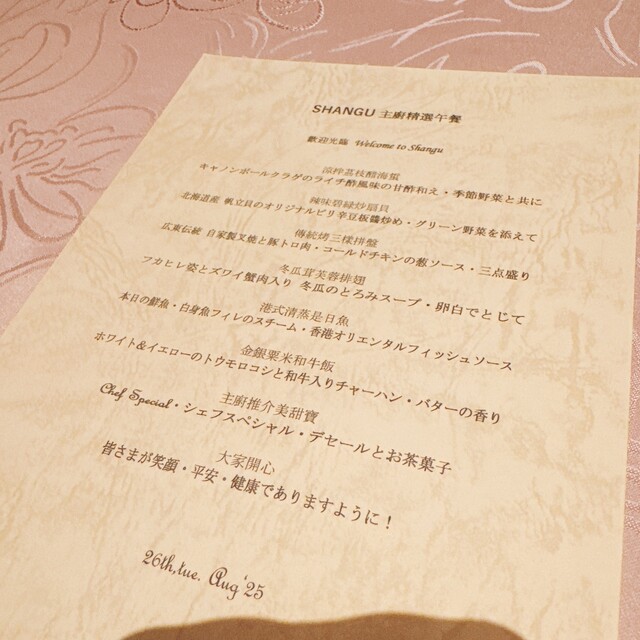 SHANGU 主廚精選午餐
歡迎光臨 Welcome to Shangu
涼拌荔枝醋海蜇
キャノンボールクラゲのライチ酢風味の甘酢和え・季節野菜と共に
辣味碧綠炒扇貝
北海道産 帆立貝のオリジナルピリ辛豆板醤炒め・グリーン野菜を添えて
傳統烤三樣拼盤
広東伝統 自家製叉焼と豚トロ肉・コールドチキンの葱ソース・三点盛り
冬瓜茸芙蓉排翅
フカヒレ姿とズワイ蟹肉入り 冬瓜のとろみスープ・卵白でとじて
港式清蒸是日魚
本日の鮮魚・白身魚フィレのスチーム・香港オリエンタルフィッシュソース
金銀粟米和牛飯
ホワイト&イエローのトウモロコシと和牛入りチャーハン・バターの香り
主廚推介美甜寶
Chef Special・シェフスペシャル・デセールとお茶菓子
大家開心
皆さまが笑顔・平安・健康でありますように！
26th,tue. Aug '25